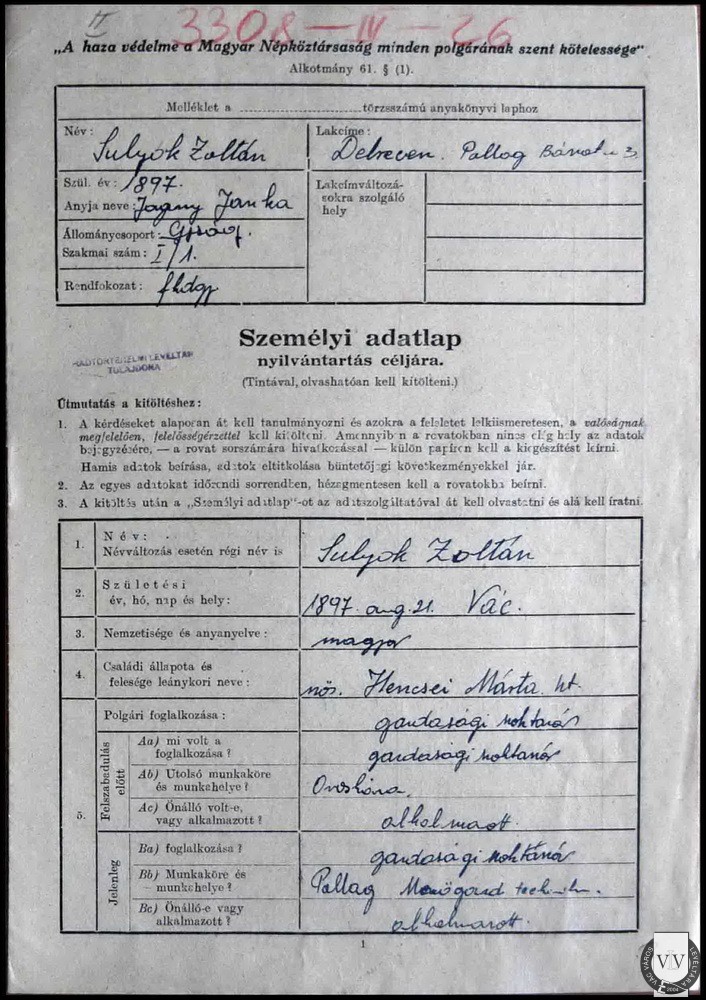 II
3308-IV-26
„A haza védelme a Magyar Népköztársaság minden polgárának szent kötelessége"
Alkotmány 61. § (1).
Melléklet a ........................ törzsszámú anyakönyvi laphoz
Név: Sulyok Zoltán
Lakcíme: Debrecen. Pallag
Szül. év: 1897.
Anyja neve: Janka
Lakcímváltozá-
sokra szolgáló
hely
Állománycsoport:
Szakmai szám: I/1.
Rendfokozat: fhdgy
Személyi adatlap
nyilvántartás céljára.
HADTÖRTÉNELMI LEVÉLTÁR
TULAJDONA
(Tintával, olvashatóan kell kitölteni.)
Útmutatás a kitöltéshez:
1. A kérdéseket alaposan át kell tanulmányozni és azokra a feleletet lelkiismeretesen, a valóságnak
megfelelően, felelősségérzettel kell kitölteni. Amennyiben a rovatokban nincs elég hely az adatok
bejegyzésére, — a rovat sorszámára hivatkozással — külön papíron kell a kiegészítést leírni.
Hamis adatok beírása, adatok eltitkolása büntetőjogi következményekkel jár.
2. Az egyes adatokat időrendi sorrendben, hézagmentesen kell a rovatokba beírni.
3. A kitöltés után a „Személyi adatlap"-ot az adatszolgáltatóval át kell olvastatni és alá kell íratni.
1. Név:
Névváltozás esetén régi név is
Sulyok Zoltán
2. Születési
év, hó, nap és hely:
1897. aug. 21. Vác.
3. Nemzetisége és anyanyelve: magyar
4. Családi állapota és
felesége leánykori neve:
nős. Hencsei Márta ht.
5. Polgári foglalkozása: gazdasági szaktanár
Felszabadulás
előtt
Aa) mi volt a
foglalkozása?
gazdasági szaktanár
Ab) Utolsó munkaköre
és munkahelye?
Orosháza.
Ac) Önálló volt-e,
vagy alkalmazott?
alkalmazott.
Jelenleg
Ba) foglalkozása? gazdasági szaktanár
Bb) Munkaköre és
munkahelye?
Pallag Mezőgazd techn.
Bc) Önálló-e vagy
alkalmazott?
alkalmazott.
1
VÁC VÁROS LEVÉLTÁRA